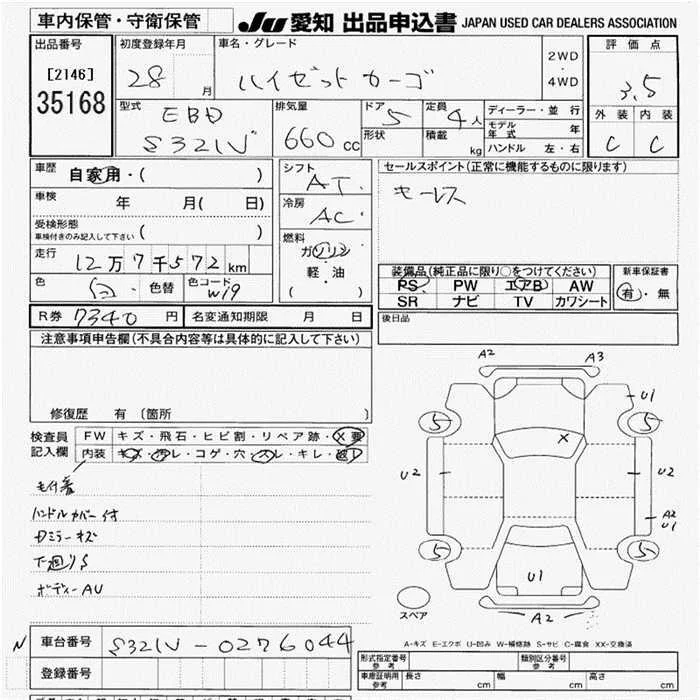 車内保管・守衛保管 JU 愛知 出品申込書 JAPAN USED CAR DEALERS ASSOCIATION
出品番号
[2146]
35168
初度登録年月
28 月
車名・グレード
ハイゼットカーゴ
2WD
・
4WD
評価点
3.5
型式
EBD
S321V
排気量
660 cc
ドア 5
形状
定員 4人
積載 kg
ディーラー・並行
モデル年式 年
ハンドル 左・右
外装 内装
C C
車歴 自家用・( )
車検 年 月( 日)
受検形態 ( )
車検付きのみ記入して下さい
走行 12万7千572km
色 白 色替 色コード W19
シフト
AT
冷房
AC
燃料
ガソリン
軽・油
( )
セールスポイント(正常に機能するものに限ります)
キーレス
装備品(純正品に限り○をつけてください)
PS PW エアB AW
SR ナビ TV カワシート
新車保証書
有・無
R券 7340 円 名変通知期限 月 日
後日品
注意事項申告欄(不具合内容等は具体的に記入して下さい)
修復歴 有 〔箇所 〕
検査員
記入欄
FW キズ・飛石・ヒビ割・リペア跡・X要
内装 キズ・汚レ・コゲ・穴・スレ・キレ・破レ
毛付着
ハンドルカバー付
Dミラーキズ
下廻りS
ボディーAU
A2 A3
U1
5 5
X
U2 U2
A2
U1
5 5
U1
スペア
A2
A-キズ E-エクボ U-凹み W-補修跡 S-サビ C-腐食 XX-交換済
N 車台番号 S321V-0276044
登録番号
形式指定番号
参考
類別区分番号
参考
車庫証明用
参考
長さ cm 幅 cm 高さ cm